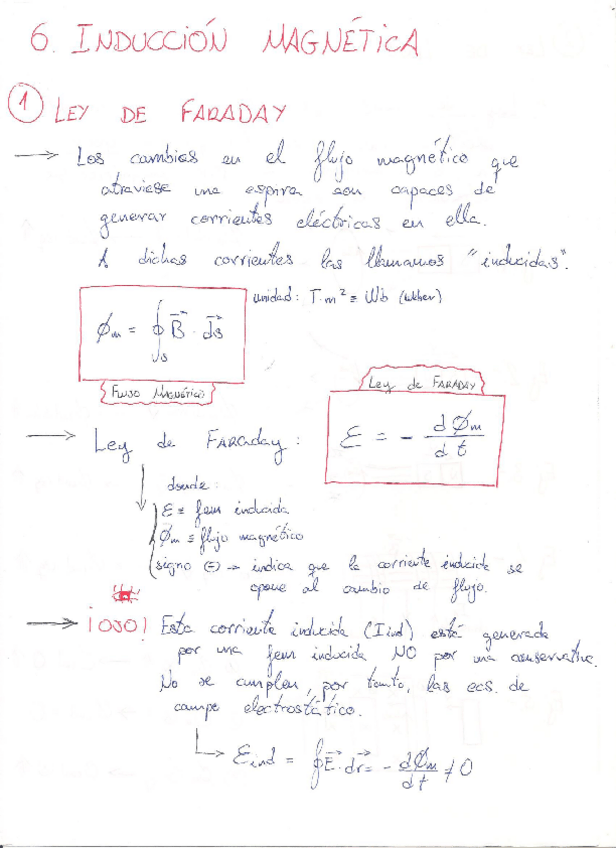 6. INDUCCIÓN MAGNÉTICA
① LEY DE FARADAY
→ Los cambios en el flujo magnético que
atraviese una espira son capaces de
generar corrientes eléctricas en ella.
A dichas corrientes las llamamos "inducidas".
ϕm = ∮s B⃗ · ds⃗
unidad: T·m² ≡ Wb (weber)
FLUJO MAGNÉTICO
Ley de FARADAY
→ Ley de FARADAY:
ε = - dϕm/dt
donde:
ε ≡ fem inducida
ϕm ≡ flujo magnético
signo (-) → indica que la corriente inducida se
opone al cambio de flujo.
→ ¡OJO! Esta corriente inducida (Iind) está generada
por una fem inducida NO por una conservativa.
No se cumplen, por tanto, las ecs. de
campo electrostático.
↳ εind = ∮E⃗·dr⃗ = - dϕm/dt ≠ 0